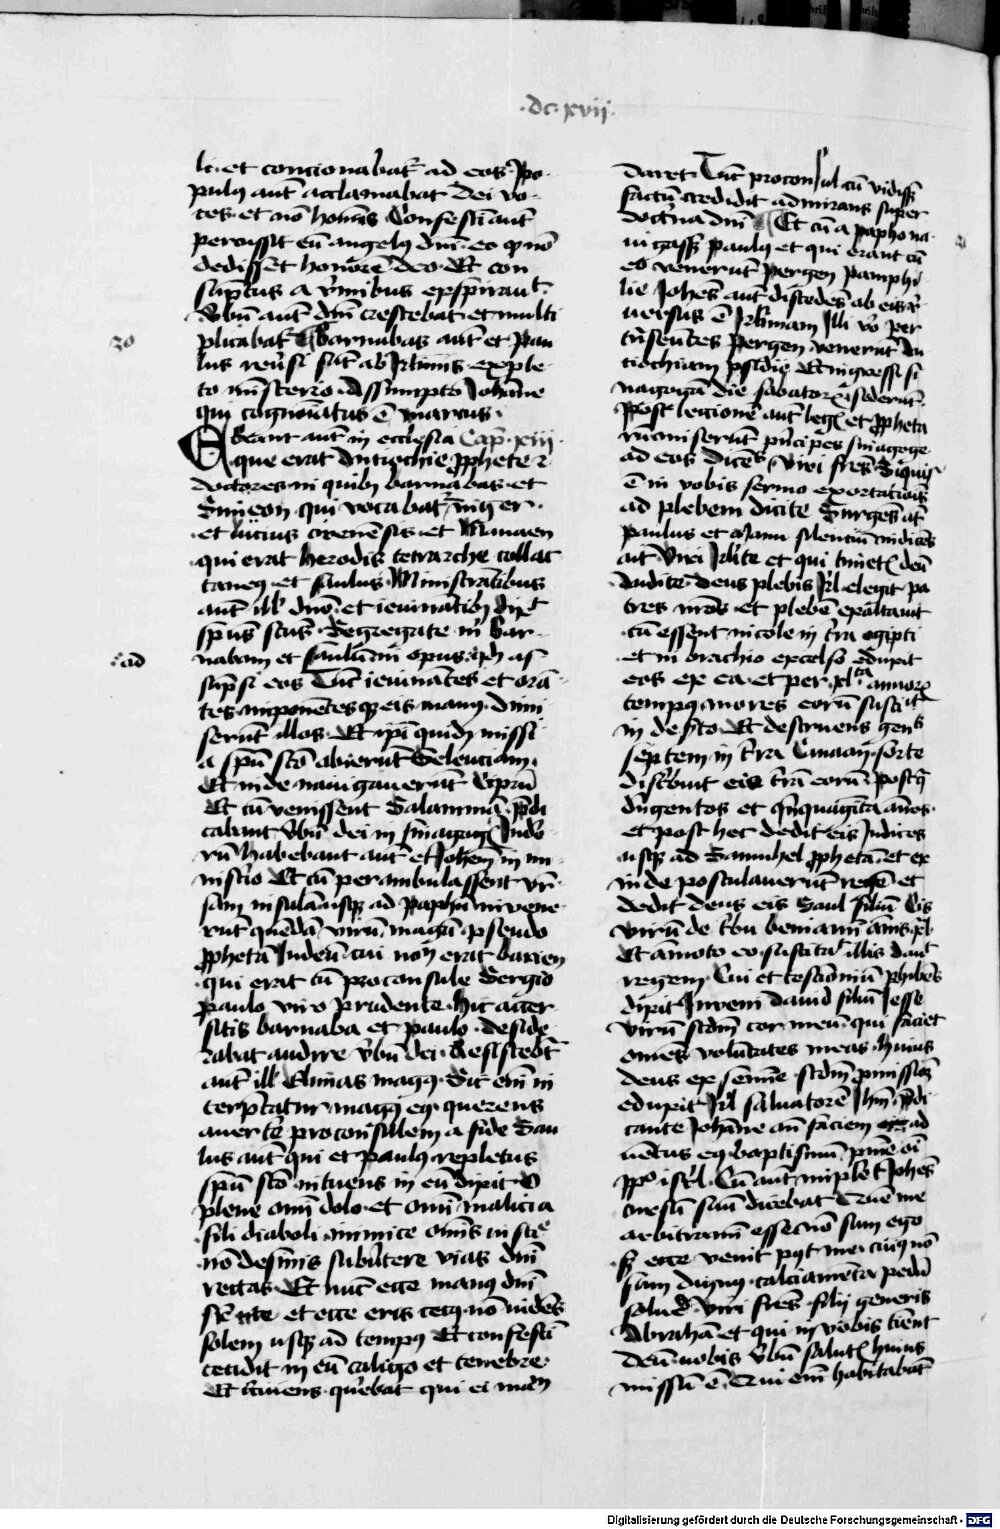 ·dc·xvii·
li· et concionabat᷑ ad eos· Po-
pulꝰ aut̄ acclamabat Dei vo-
ces· et nō hoīs Confesti aut̄
percussit eū angelꝰ dn̄i· eo ꝙ nō
dedisset honorē deo· Et con
sūptus a v̓mibus expiraut·
v̓bū aut̄ dn̄i crescebat et multi
plicabat᷑ ¶ Barnabas aut̄ et Pau
20
lus reu̓si sūt ab Jrl̄imis· exple-
to mīsterio· assumpto Johāne
qui cognoīatus ē marcus·
Erant aut̄ in ecclesia Cap̄· xiii·
que erat Antiochie ꝓphete ⁊
doctores in quibꝰ barnabas· et
Simeon· qui vocabat᷑ niger·
et lucius cirenēsis· et Manaen
qui erat herodis tetrarche collac
taneꝰ· et saulus· Ministrātibus
aut̄ ill̓ dn̄o· et ieiunātibꝰ dix̄
spūs scūs· Segregate m̓ Bar-
ad
nabam et saulum in opus· qḋ as-
sūpsi eos Tūc ieiunātes et orā-
tes· imponētesqꝫ eis manꝰ· dimi
serūt illos· Et ip̄i quidē missi
a spū scō abierūt Seleuciam·
Et inde nauigauerūt Ciprū
Et cū venissent Salaminā· p̄di
cabant v̓bū dei in sinagogꝭ Judeo
rū habebant aut̄ et Johem̄ in mi-
nist̓io Et cū perambulassent vn̄-
sam insulā usqꝫ ad paphū inuene-
rūt quēdā virū· magū· pseudo
ꝓphetā Judeū· cui nom̄ erat barieu
qui erat cū proconsule Sergio
paulo viro prudente· hic accer
sitis barnaba et paulo· deside
rabat audire v̓bū dei· Resistebat
aut̄ ill̓ Elimas magꝰ· Sic em̄ in
terp̄tatur magꝰ eꝰ· querens
auerte̓ proconsulem a fide Sau
lus aut̄ qui et paulꝰ· repletus
spū scō intuens in eū dixit O
plene om̄i dolo· et om̄i malicia
fili diaboli· inimice om̄is iusticie
nō desinis subv̓tere vias dn̄i
rectas Et nūc ecce manꝰ dn̄i
sr̄ te· et ecce eris cecꝰ· nō uidēs
solem usqꝫ ad tempꝰ Et confesti
cecidit in eū caligo et tenebre·
Et c̓uiens· querebat qui ei manū
daret· Tūc proconsul cū vidiss̄
factū· credidit admirans super
doct̓na dn̄i ¶ Et cū a papho na-
uigass̄ paulꝰ et qui erant cū
eo venerūt Pergen Pamphi
lie Johes̄ aut̄ discedēs ab eis· re
uersus ē Jrl̄imam Illi vo̓ per
tn̄seuntes Pergen venerūt An
tiochiam psidie Et ingressi si
nagogā die sabatorꝝ· sederūt·
Post lectionē aut̄ legꝭ et ꝓpheta
rū· miserūt p̓ncipes sinagoge
ad eos dicēs· Viri fres̄ Si quis
ē in vobis sermo exortatiōis
ad plebem dicite Surgēs at̄
paulus et manu silenciū indicēs
ait Viri Jsrl̄ite et qui timetꝭ deū
Audite· Deus plebis Jsrl̄ elegit pa
tres nrōs· et plebē exaltauit
cū essent incole in tr̄a egipti
et in brachio excelso eduxit
eos ex ea· et per ·xl·ta annorꝝ
tempꝰ· mores eorū sustiūt
in deserto Et destruens gens
septem in tr̄a Canaan· sorte
distribuit eis tr̄ā eorū Postq̄
ducentos et quinquaginta ānos·
et post hec dedit eis Judices
usqꝫ ad Samuhel ꝓphetā· et ex
inde postulauerūt regē et
dedit deus eis Saul filiū Cis
virū de tribu beniamī· ānis· xl·
Et amoto eo suscitaut illis dauid
regem· Cui et testimoniū phibēs
dixit Inveni dauid filiū Jesse
virū scdm̄ cor meū· qui faciet
om̄es volūtates meas· huius
deus ex semīe· scdm̄ p̄missioē
eduxit Jsrl̄ saluatorē Jhm̄· p̄di
cante Johāne an̄ faciem ad
uētus eꝰ· baptismū pnīe oī
ppl̄o isrl̄· Cū aut̄ impleꝫ Johēs
cursū suū dicebat Quē me
arbitramī esse· nō sum ego
sꝫ ecce venit pꝰt me· cuiꝰ nō
sum dignꝰ· calciamēta pedū
soluē· Viri fres̄· filij generis
Abrahā· et qui in vobis timēt
deū· uobis v̓bū salutꝭ huius
missū ē· Qui em̄ habitabāt
Digitalisierung gefördert durch die Deutsche Forschungsgemeinschaft - DFG